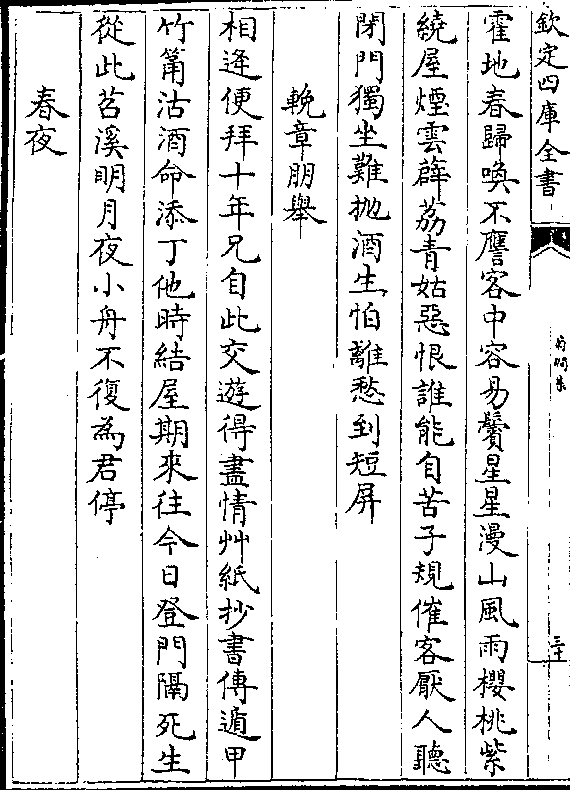 欽定四庫全書
霍地春歸喚不譍客中容易鬢星星漫山風雨櫻桃紫
繞屋煙雲薜荔青姑惡恨誰能自苦子規催客厭人聽
閉門獨坐難抛酒生怕離愁到短屏
輓章朋舉
相逄便拜十年兄自此交遊得盡情艸紙抄書傳遁甲
竹篘沽酒命添丁他時結屋期來往今日登門隔死生
從此苕溪明月夜小舟不復為君停
春夜